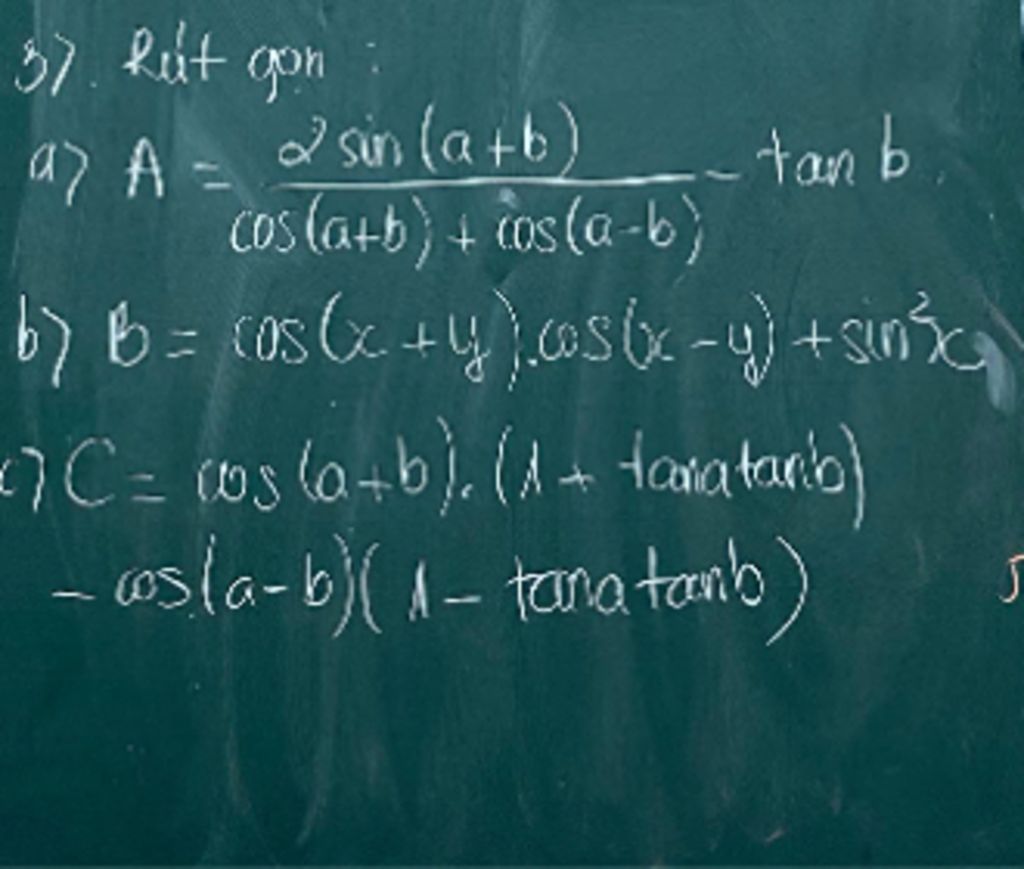 3). Rút gọn :
a) A = 2 sin(a+b) / cos(a+b) + cos(a-b) - tan b.
b) B = cos(x+y).cos(x-y) + sin²x
c) C = cos(a+b).(1 + tana tanb)
- cos(a-b)(1 - tana tanb)
5